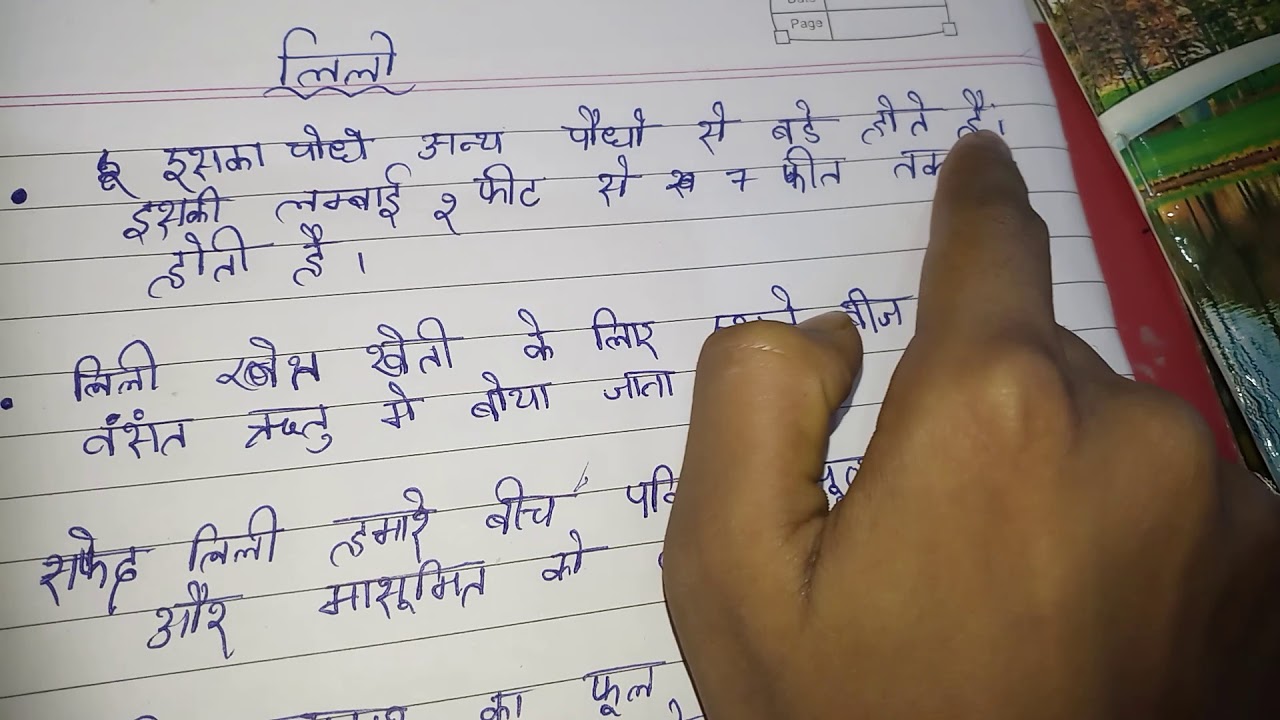 Page
लिली
इसका पौधे अन्य पौधो से बडे होते है।
इसकी लम्बाई २ फीट से 7 फीत तक
होती है।
लिली खेती के लिए बीज
वंसंत ऋतु मे बोया जाता
सफेद लिली हमारे बीच
और मासूमित को
का फूल